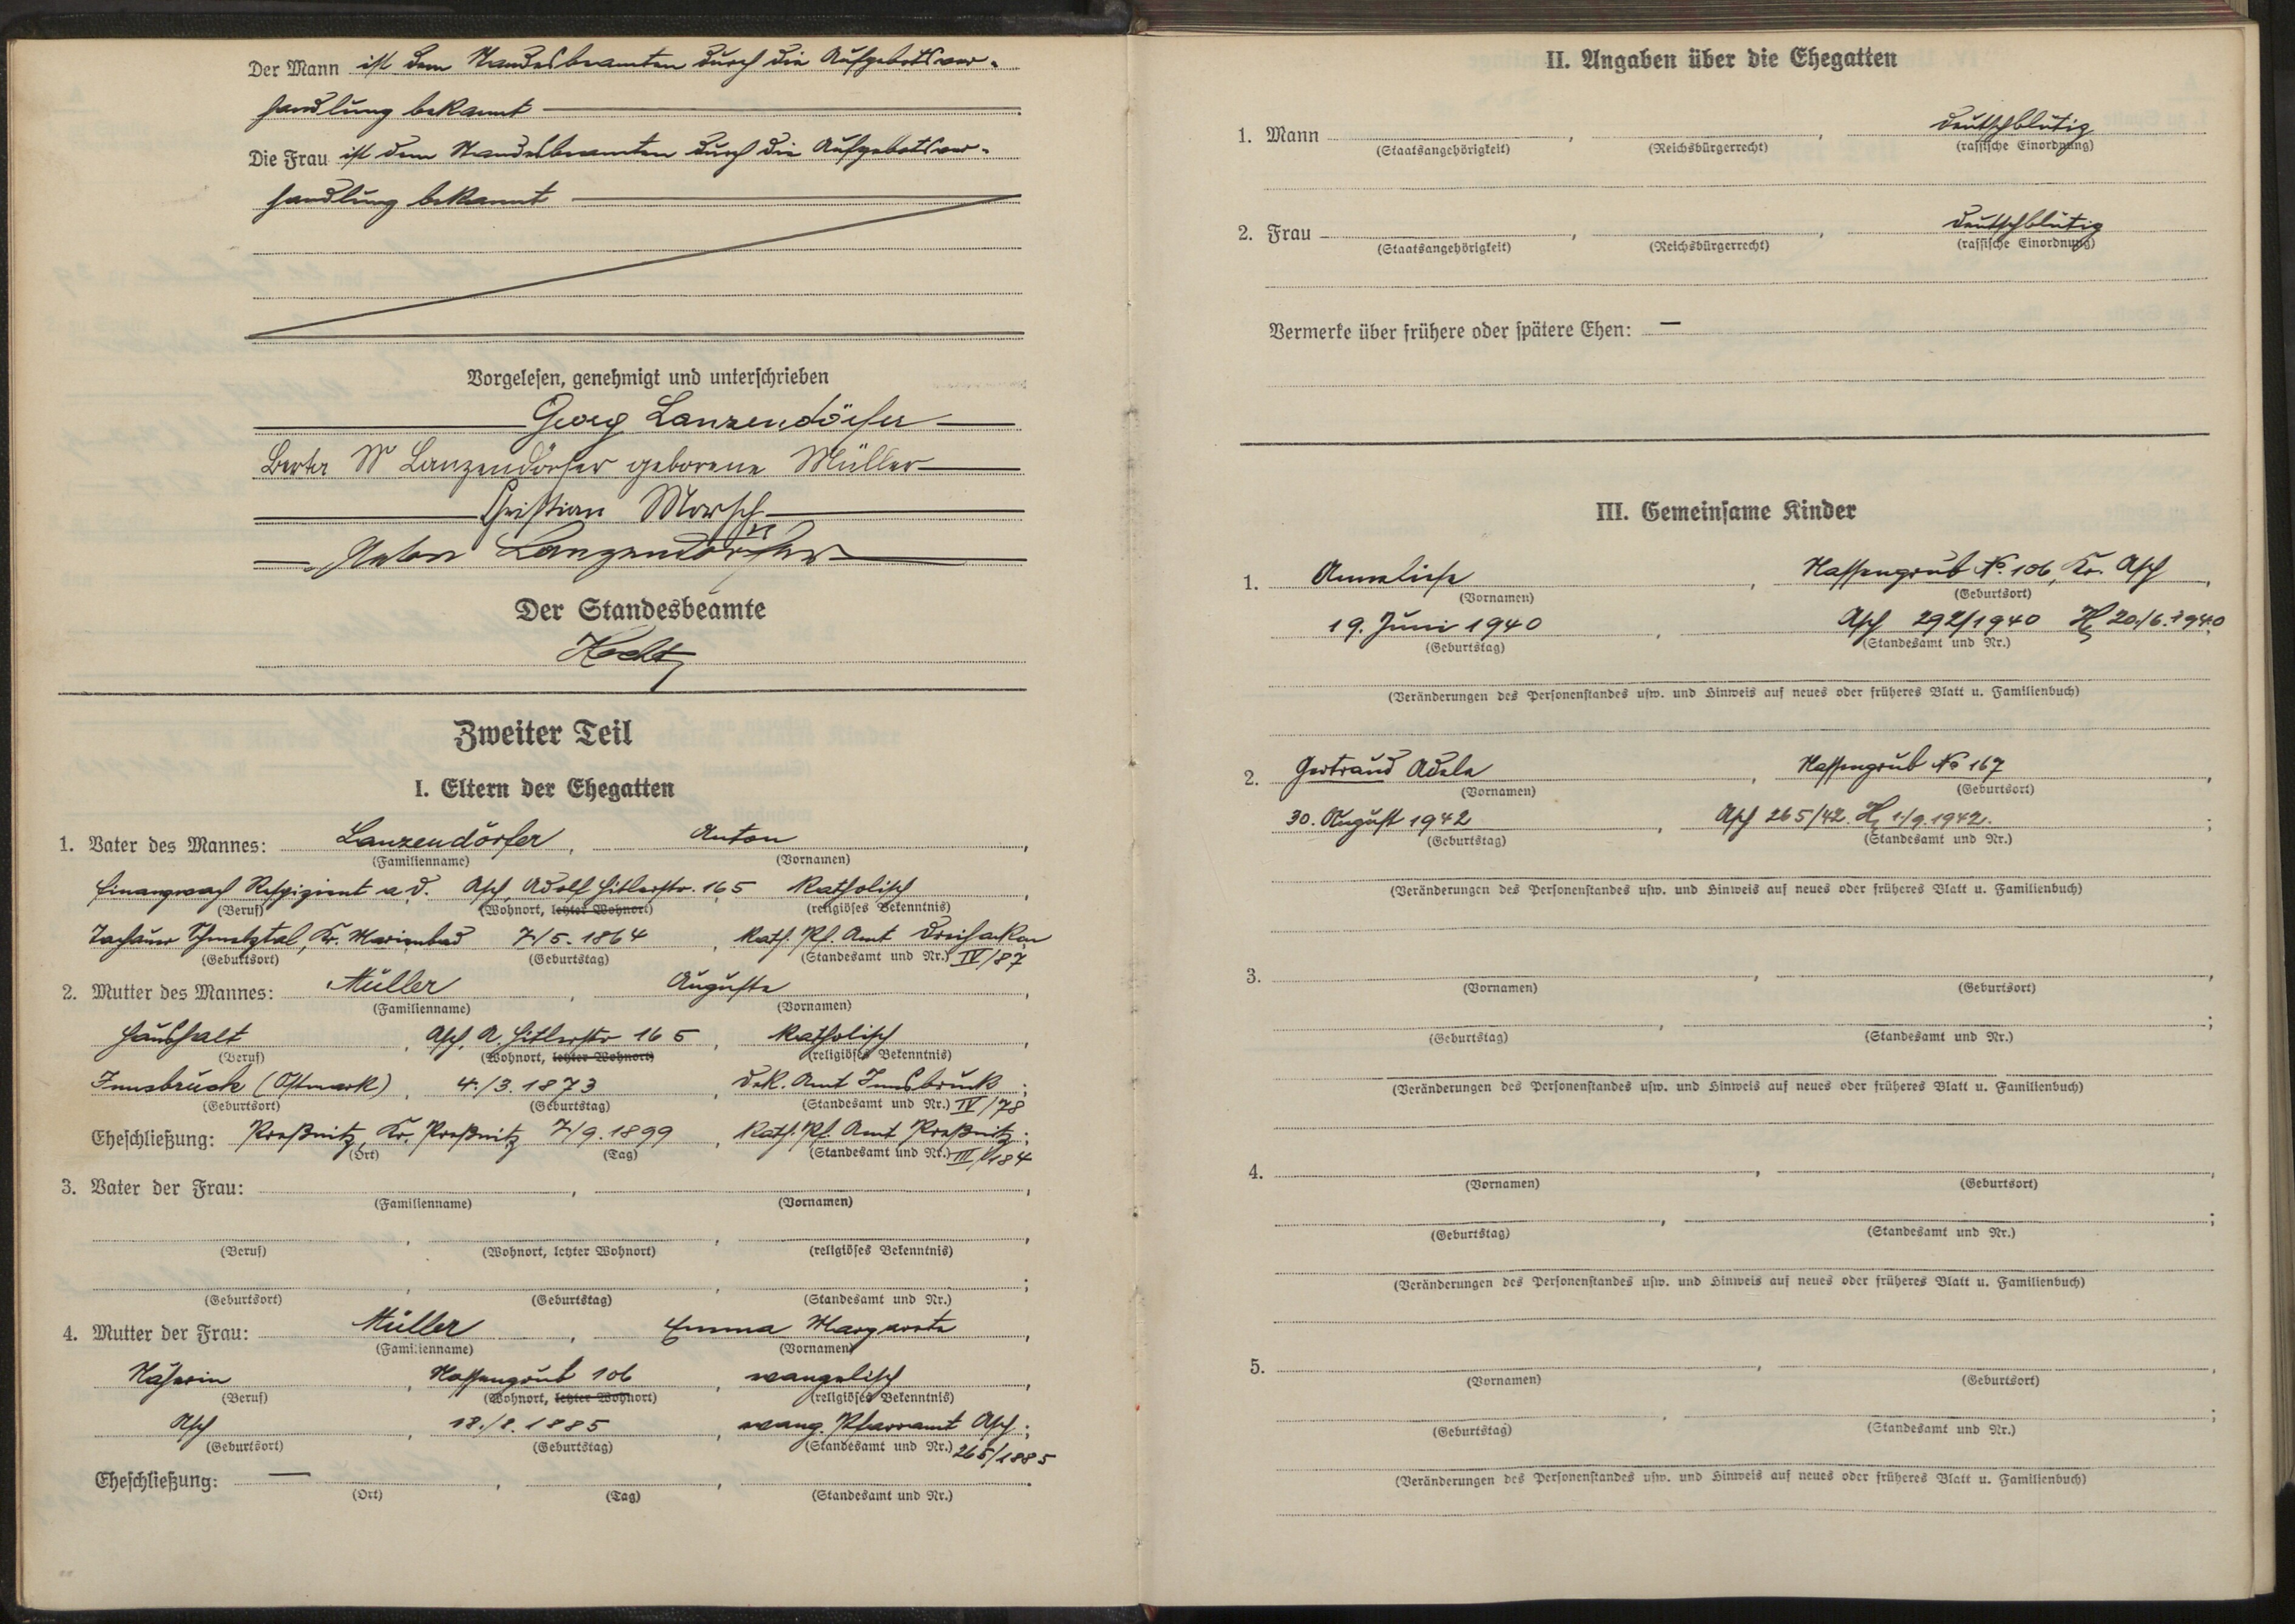 Der Mann ist dem Standesbeamten durch die Aufgebotsver-
handlung bekannt
Die Frau ist dem Standesbeamten durch die Aufgebotsver-
handlung bekannt
Vorgelesen, genehmigt und unterschrieben
Georg Lanzendörfer
Berta Lanzendörfer geborene Müller
Christian Morsch
Anton Lanzendörfer
Der Standesbeamte
Zweiter Teil
I. Eltern der Ehegatten
1. Vater des Mannes: Lanzendörfer, Anton,
(Familienname) (Vornamen)
Finanzwach Respizient a. D. Asch, Adolf Hitlerstr. 165 Katholisch,
(Beruf) (Wohnort, letzter Wohnort) (religiöses Bekenntnis)
Tachauer Schmelztal, Kr. Marienbad 7/5. 1864, Kath. Pf. Amt Dreihacken
(Geburtsort) (Geburtstag) (Standesamt und Nr.) IV/87
2. Mutter des Mannes: Müller, Auguste,
(Familienname) (Vornamen)
Haushalt, Asch, A. Hitlerstr 165, Katholisch,
(Beruf) (Wohnort, letzter Wohnort) (religiöses Bekenntnis)
Innsbruck (Ostmark), 4./3. 1873, Dek. Amt Innsbruck;
(Geburtsort) (Geburtstag) (Standesamt und Nr.) IV/78
Eheschließung: Proßnitz, Kr. Proßnitz 7/9. 1899, Kath. Pf. Amt Proßnitz;
(Ort) (Tag) (Standesamt und Nr.) III/184
3. Vater der Frau:
(Familienname) (Vornamen)
(Beruf) (Wohnort, letzter Wohnort) (religiöses Bekenntnis)
(Geburtsort) (Geburtstag) (Standesamt und Nr.)
4. Mutter der Frau: Müller, Emma Margarete,
(Familienname) (Vornamen)
Näherin, Nassengrub 106, evangelisch,
(Beruf) (Wohnort, letzter Wohnort) (religiöses Bekenntnis)
Asch, 18./8. 1885, evang. Pfarramt Asch;
(Geburtsort) (Geburtstag) (Standesamt und Nr.) 265/1885
Eheschließung: —
(Ort) (Tag) (Standesamt und Nr.)
II. Angaben über die Ehegatten
1. Mann , , deutschblütig
(Staatsangehörigkeit) (Reichsbürgerrecht) (rassische Einordnung)
2. Frau , , deutschblütig
(Staatsangehörigkeit) (Reichsbürgerrecht) (rassische Einordnung)
Vermerke über frühere oder spätere Ehen: —
III. Gemeinsame Kinder
1. Anneliese, Nassengrub No. 106, Kr. Asch,
(Vornamen) (Geburtsort)
19. Juni 1940, Asch 292/1940 20./6. 1940
(Geburtstag) (Standesamt und Nr.)
(Veränderungen des Personenstandes usw. und Hinweis auf neues oder früheres Blatt u. Familienbuch)
2. Gertraud Adele, Nassengrub No 167,
(Vornamen) (Geburtsort)
30. August 1942, Asch 265/42. 1/9. 1942.;
(Geburtstag) (Standesamt und Nr.)
(Veränderungen des Personenstandes usw. und Hinweis auf neues oder früheres Blatt u. Familienbuch)
3.
(Vornamen) (Geburtsort)
(Geburtstag) (Standesamt und Nr.)
(Veränderungen des Personenstandes usw. und Hinweis auf neues oder früheres Blatt u. Familienbuch)
4.
(Vornamen) (Geburtsort)
(Geburtstag) (Standesamt und Nr.)
(Veränderungen des Personenstandes usw. und Hinweis auf neues oder früheres Blatt u. Familienbuch)
5.
(Vornamen) (Geburtsort)
(Geburtstag) (Standesamt und Nr.)
(Veränderungen des Personenstandes usw. und Hinweis auf neues oder früheres Blatt u. Familienbuch)